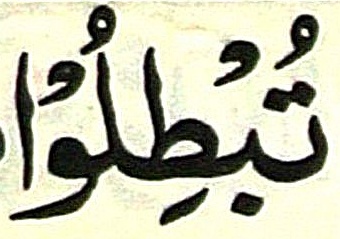 تُبْطِلُوْا